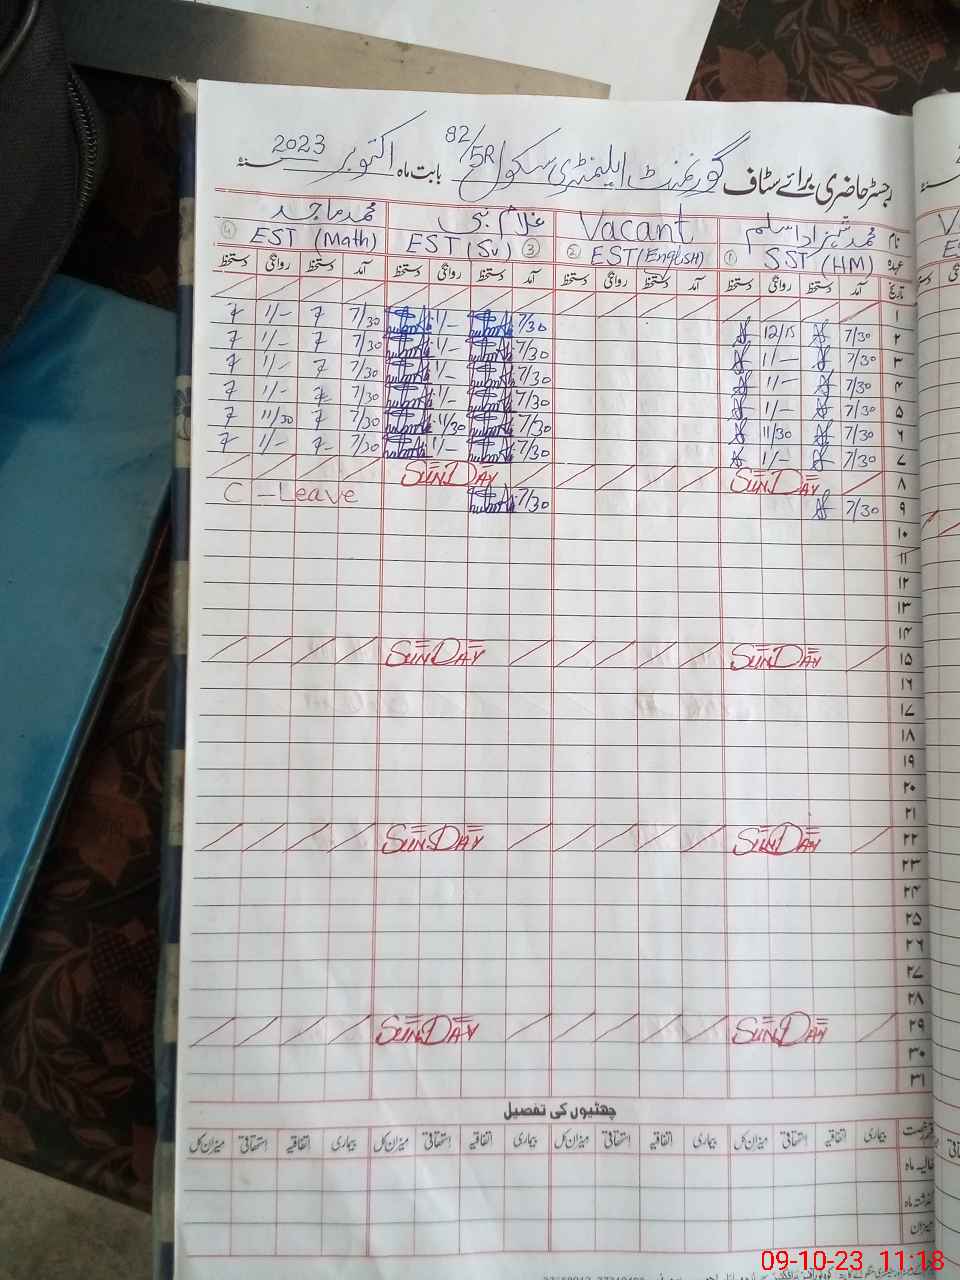 رجسٹر حاضری برائے سٹاف گورنمنٹ ایلیمنٹری سکول 82/5R بابت ماہ اکتوبر 2023 سنہ
نام محمد شہزاد اسلم Vacant غلام نبی محمد ماجد
عہدہ SST (HM) ① EST (English) ② EST (Sv) ③ EST (Math) ④
تاریخ آمد دستخط روانگی دستخط آمد دستخط روانگی دستخط آمد دستخط روانگی دستخط آمد دستخط روانگی دستخط
۱
۲ 7/30 12/15 7/30 1/- 7/30 1/-
۳ 7/30 1/- 7/30 1/- 7/30 1/-
۴ 7/30 1/- 7/30 1/- 7/30 1/-
۵ 7/30 1/- 7/30 1/- 7/30 1/-
۶ 7/30 11/30 7/30 11/30 7/30 11/30
۷ 7/30 1/- 7/30 1/- 7/30 1/-
۸ SUNDAY SUNDAY
۹ 7/30 7/30 C-Leave
۱۰
۱۱
۱۲
۱۳
۱۴
۱۵ SUNDAY SUNDAY
۱۶
۱۷
۱۸
۱۹
۲۰
۲۱
۲۲ SUNDAY SUNDAY
۲۳
۲۴
۲۵
۲۶
۲۷
۲۸
۲۹ SUNDAY SUNDAY
۳۰
۳۱
چھٹیوں کی تفصیل
بیماری اتفاقیہ استحقاقی میزان کل بیماری اتفاقیہ استحقاقی میزان کل بیماری اتفاقیہ استحقاقی میزان کل بیماری اتفاقیہ استحقاقی میزان کل
حالیہ ماہ
گذشتہ ماہ
میزان
09-10-23 11:18